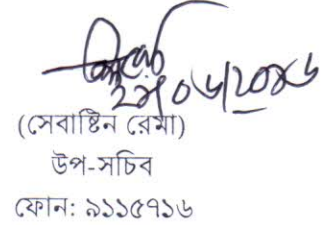 ২৯/০৬/২০১৬
(সেবাষ্টিন রেমা)
উপ-সচিব
ফোন: ৯১১৫৭১৬